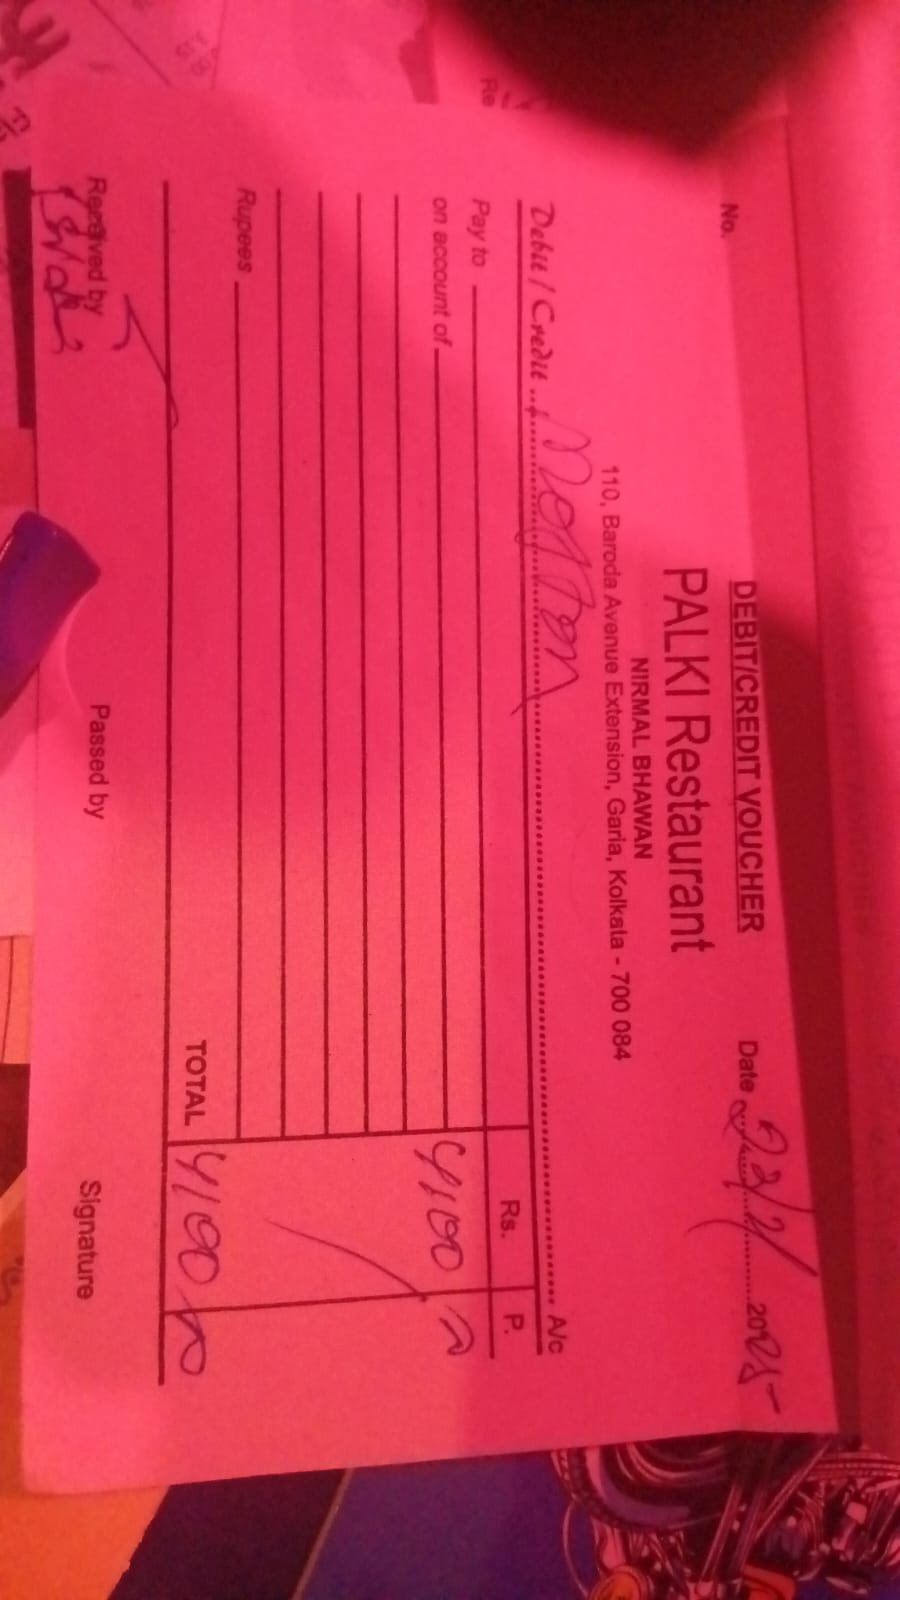 DEBIT/CREDIT VOUCHER
No.
Date 23/2/2025
PALKI Restaurant
NIRMAL BHAWAN
110, Baroda Avenue Extension, Garia, Kolkata - 700 084
Debit / Credit Motton A/c
Pay to Rs. P.
on account of 4100
Rupees
TOTAL 4100
Received by Passed by Signature